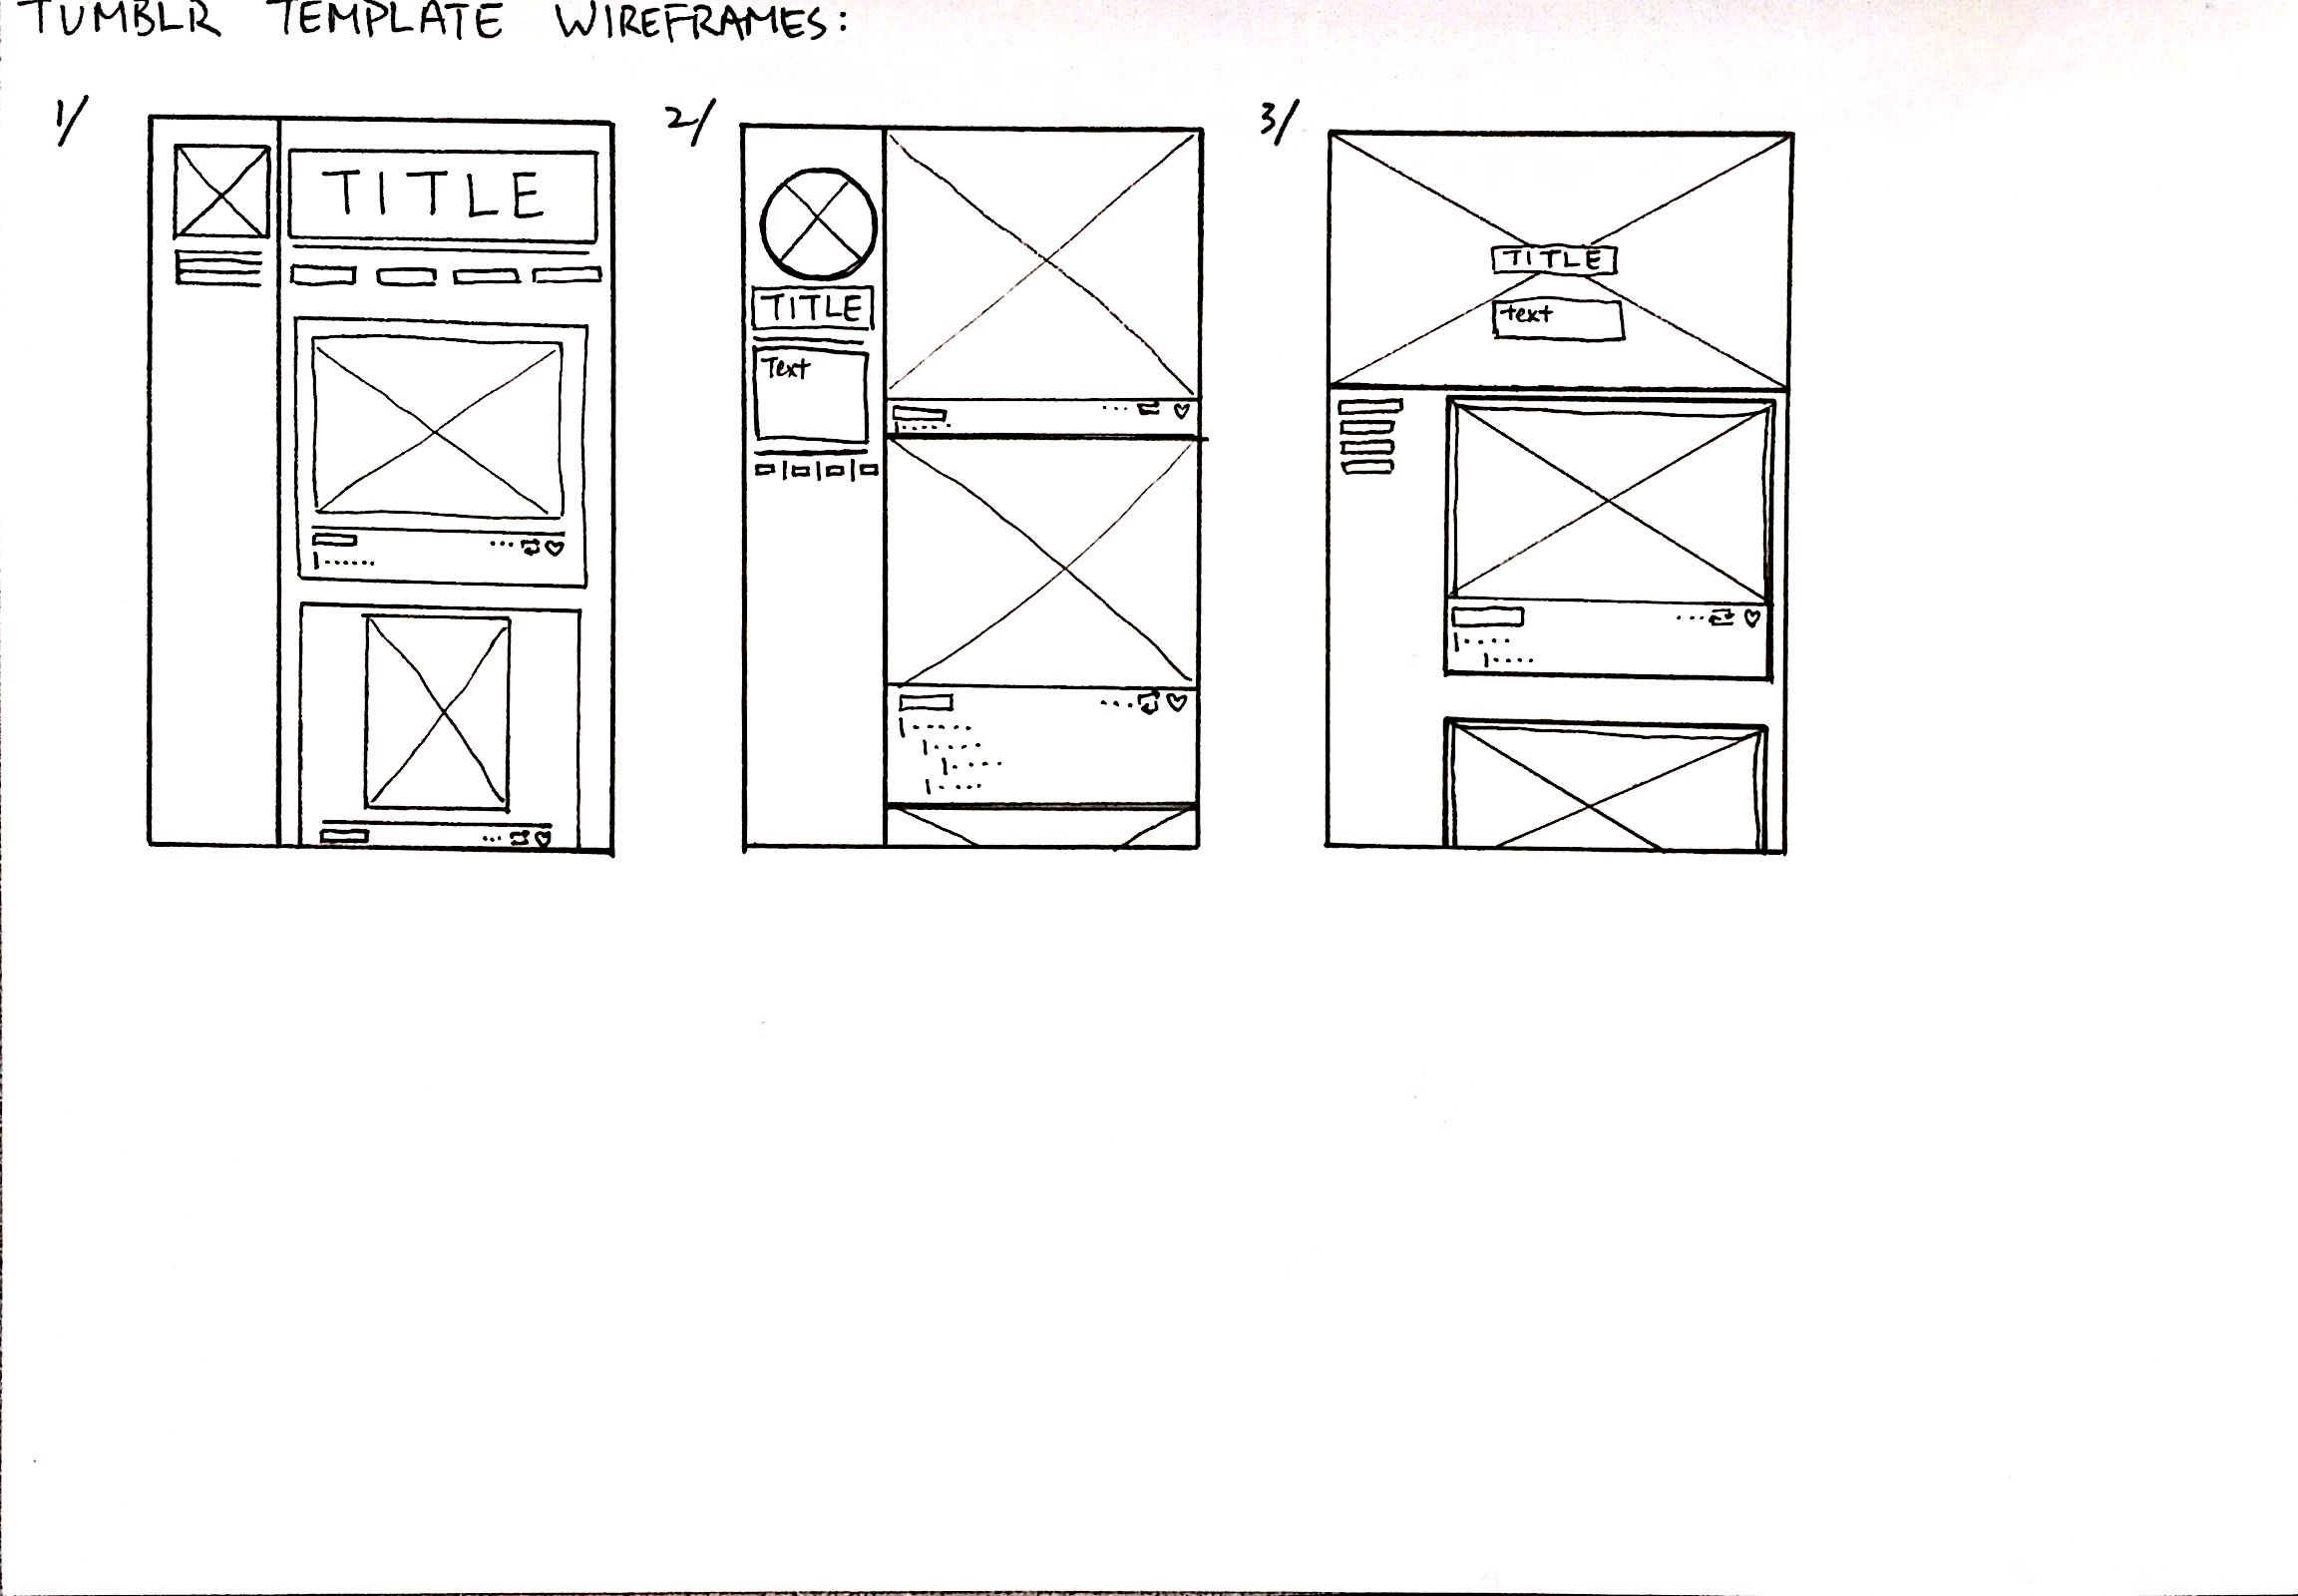 TUMBLR TEMPLATE WIREFRAMES:
1/
TITLE
2/
TITLE
Text
3/
TITLE
text